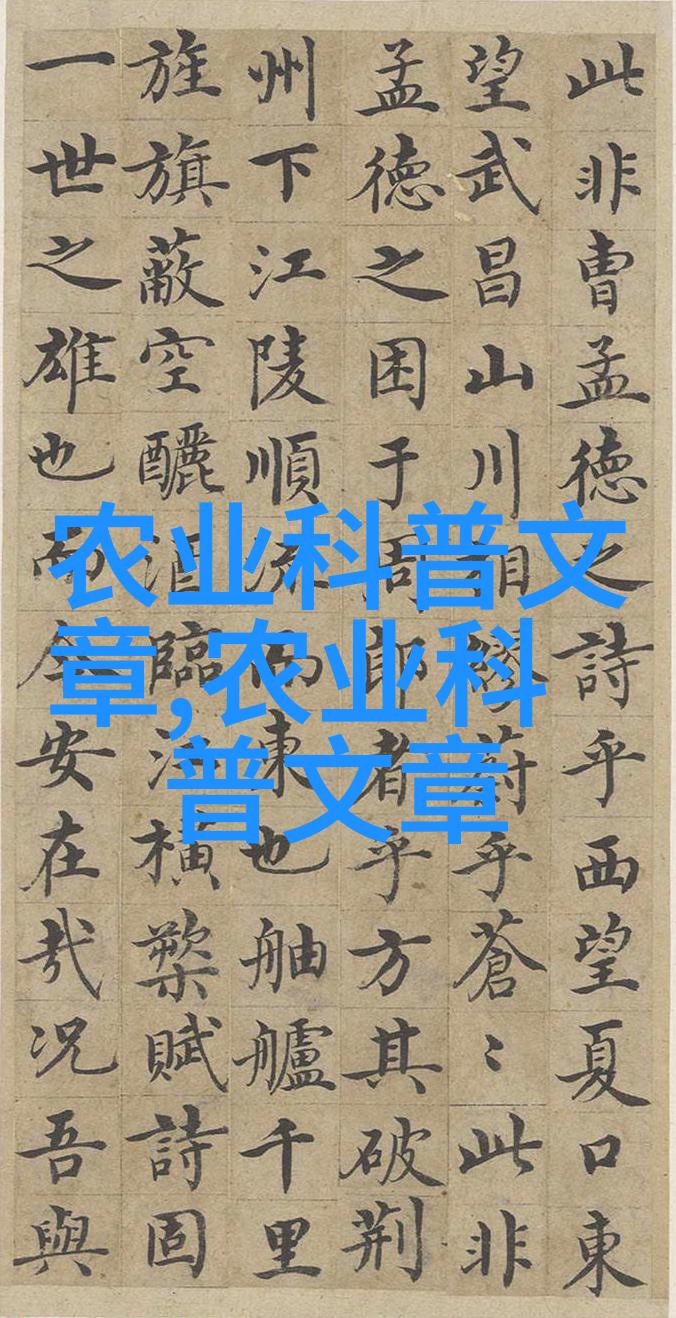 此非曹孟德之詩乎西望夏口東
望武昌山川相繆蔚乎蒼〻此非
孟德之困于周郎者乎方其破荊
州下江陵順流而東也舳艫千里
旌旗蔽空釃酒臨江橫槊賦詩固
一世之雄也而今安在哉况吾與
农业科普文
章,农业科
普文章